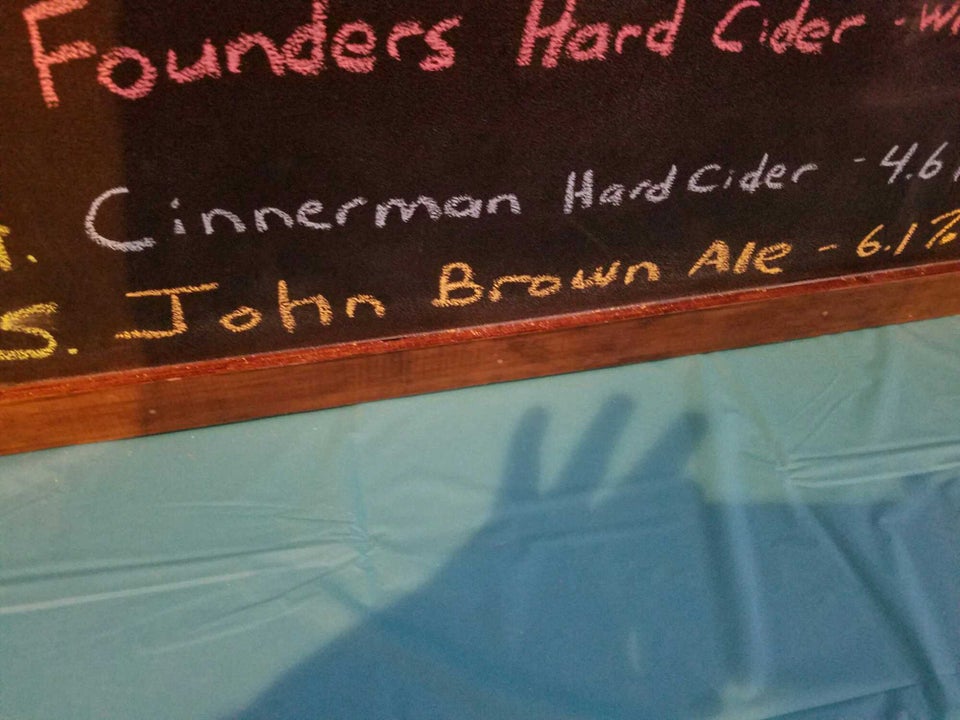 Founders Hard Cider - W
Cinnerman Hard Cider - 4.6
5. John Brown Ale - 6.1%